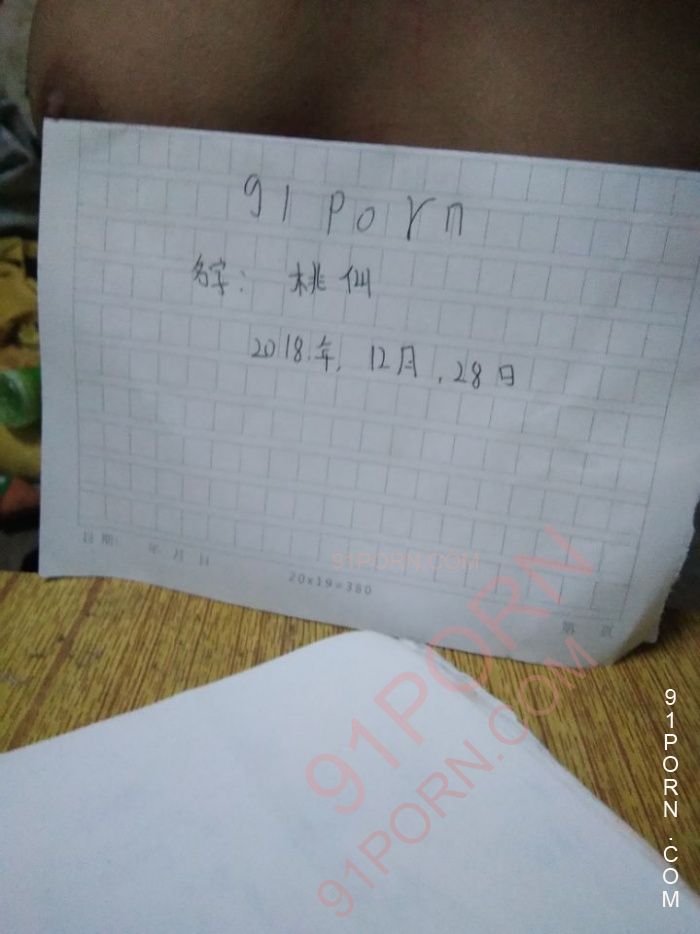 91 Porn
名字: 桃仙
2018.年, 12月, 28日
日期: 年 月 日
20x19=380
第 页
91PORN.COM
91PORN
91PORN.COM
91PORN.COM